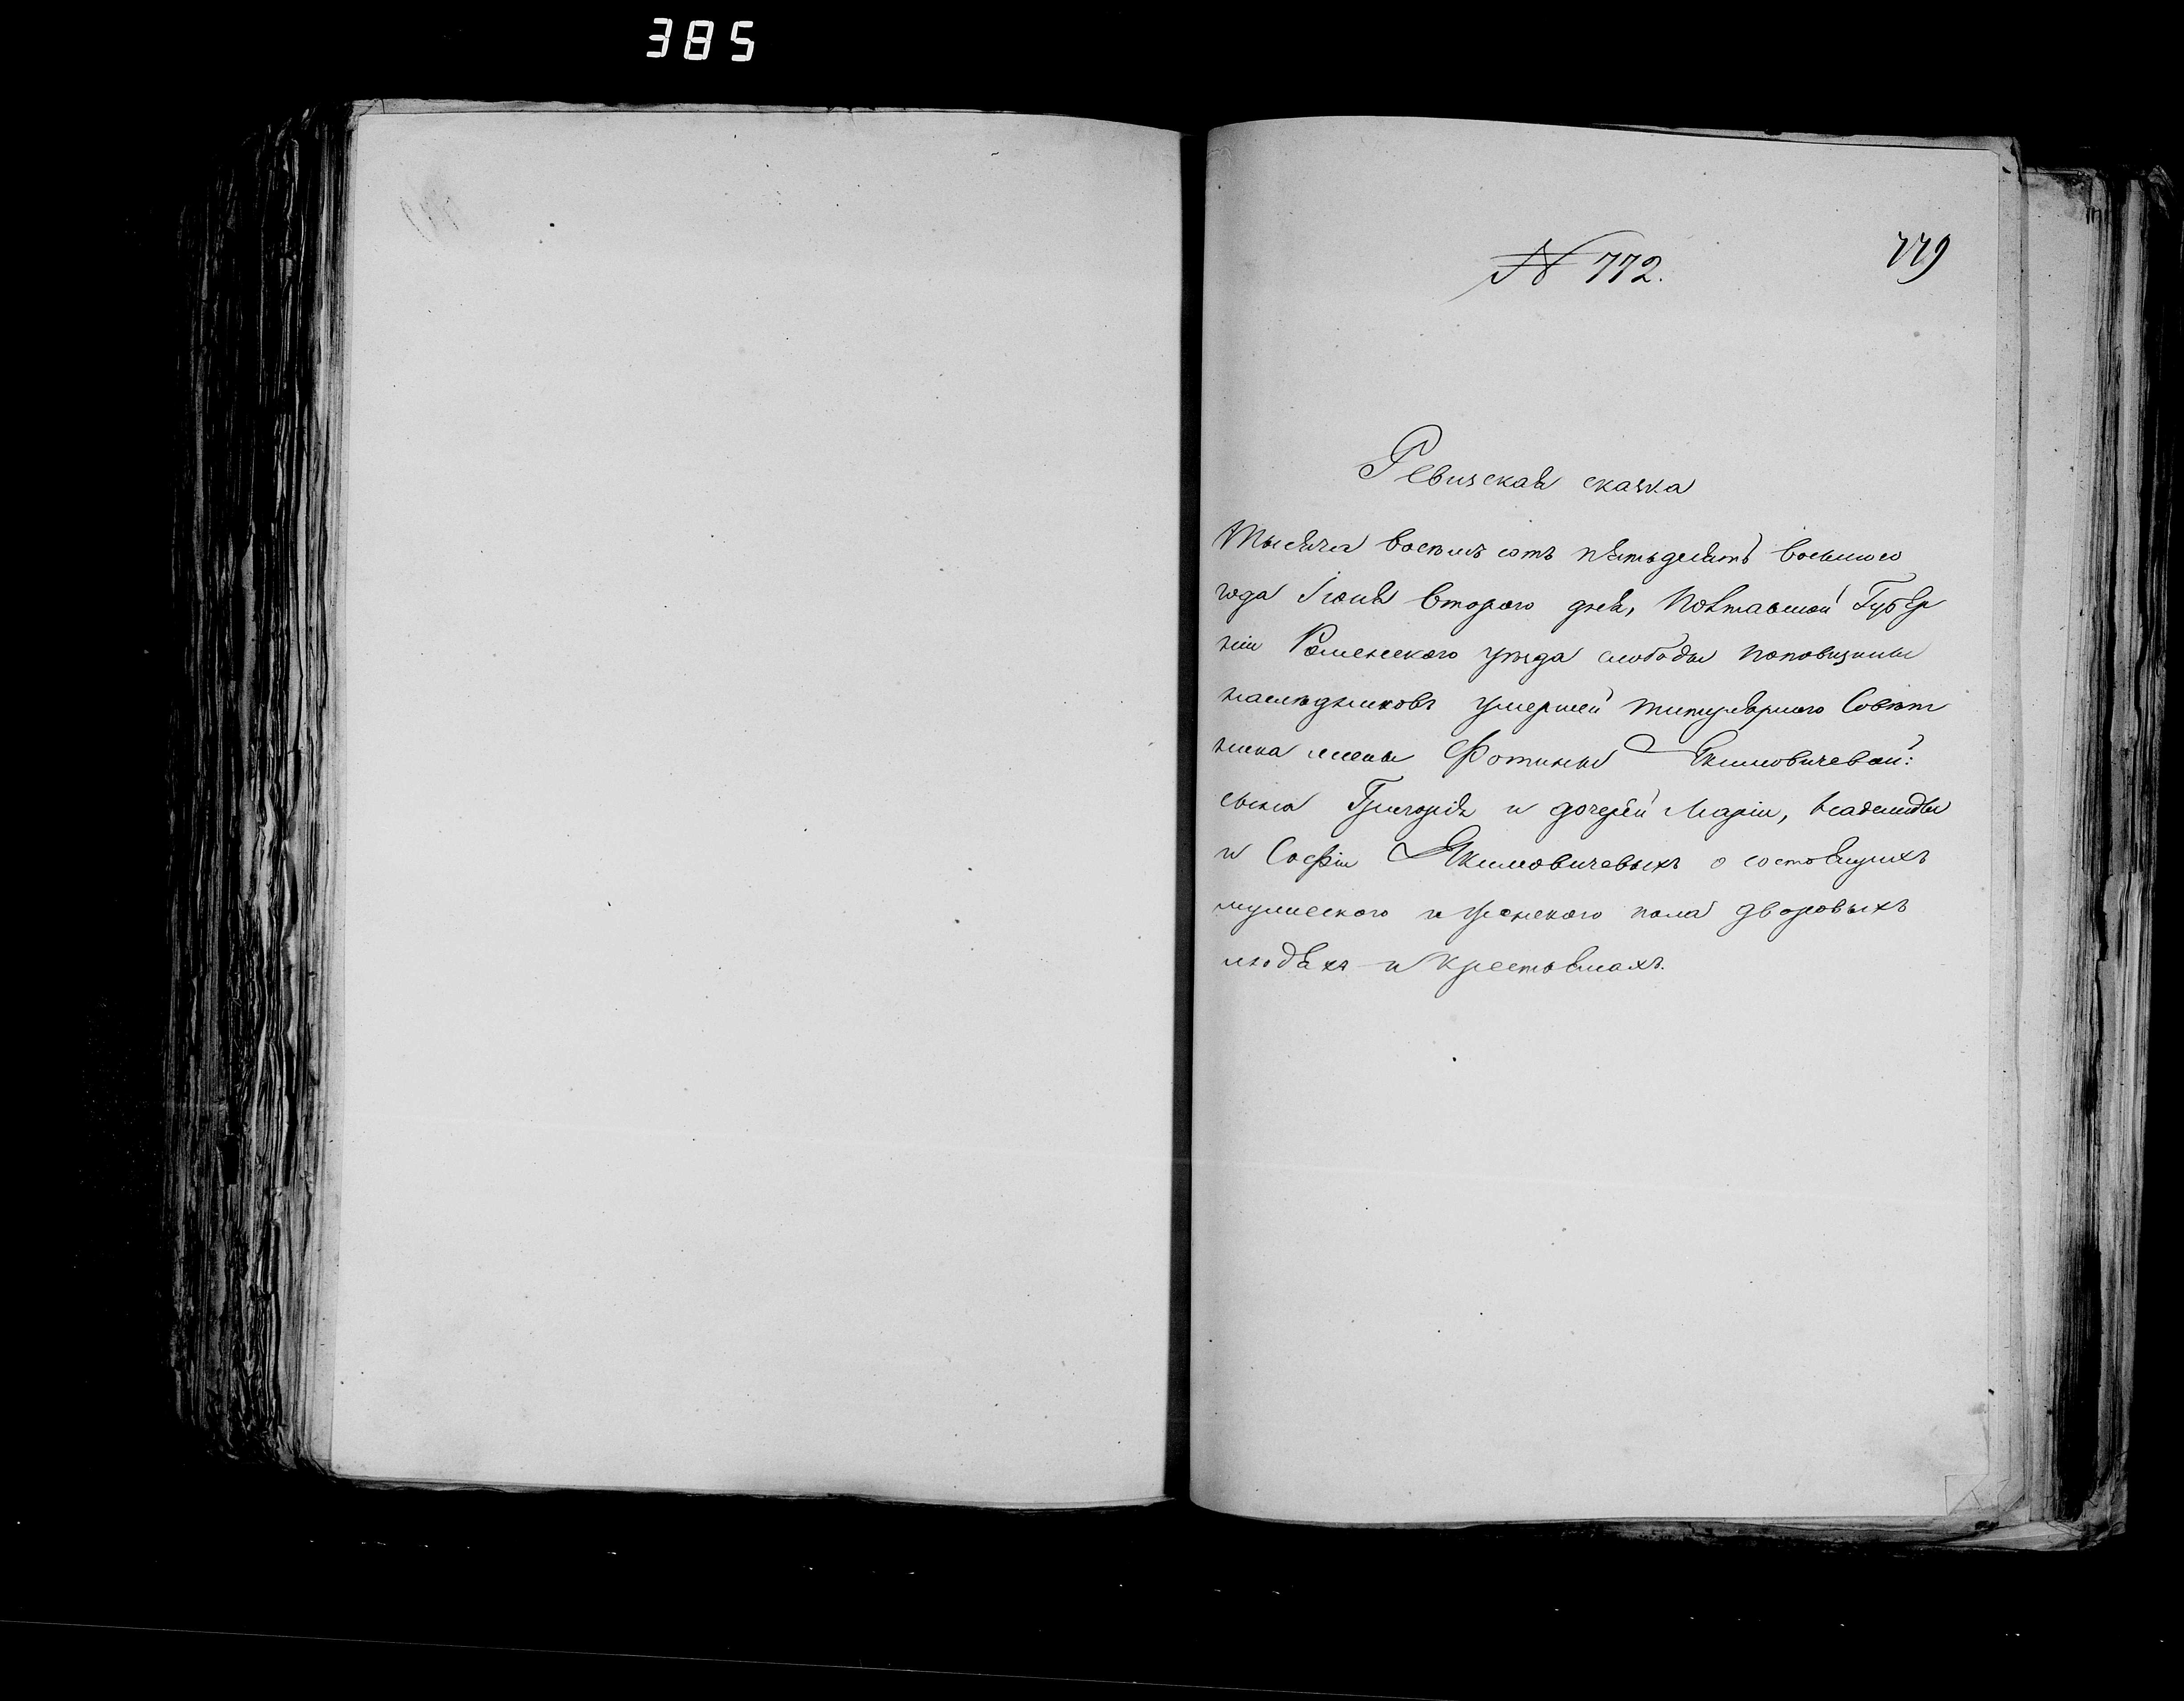 385
779
№ 772.
Ревизская сказка
Тысяча восемь сотъ пятьдесятъ восьмого
года Іюня второго дня, Полтавской Губер
ніи Роменского уѣзда слободы Поповщины
наслѣдниковъ умершей титулярного Совѣт
ника жены Фотины Якимовичевой:
сына Григорія и дочерей Маріи, Надежды
и Софіи Якимовичевыхъ о состоящихъ
мужеского и женского пола дворовыхъ
людяхъ и крестьянахъ.